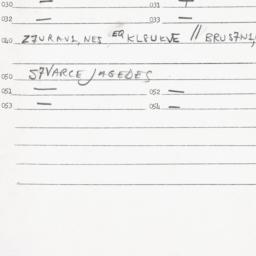 030 — 031 —
032 — 033 —
040 Z7URAVI, NES EQ KLPUKVE // BRUS7NI,
050 S7VARCE JAGEDES
051 — 052 —
053 — 054 —